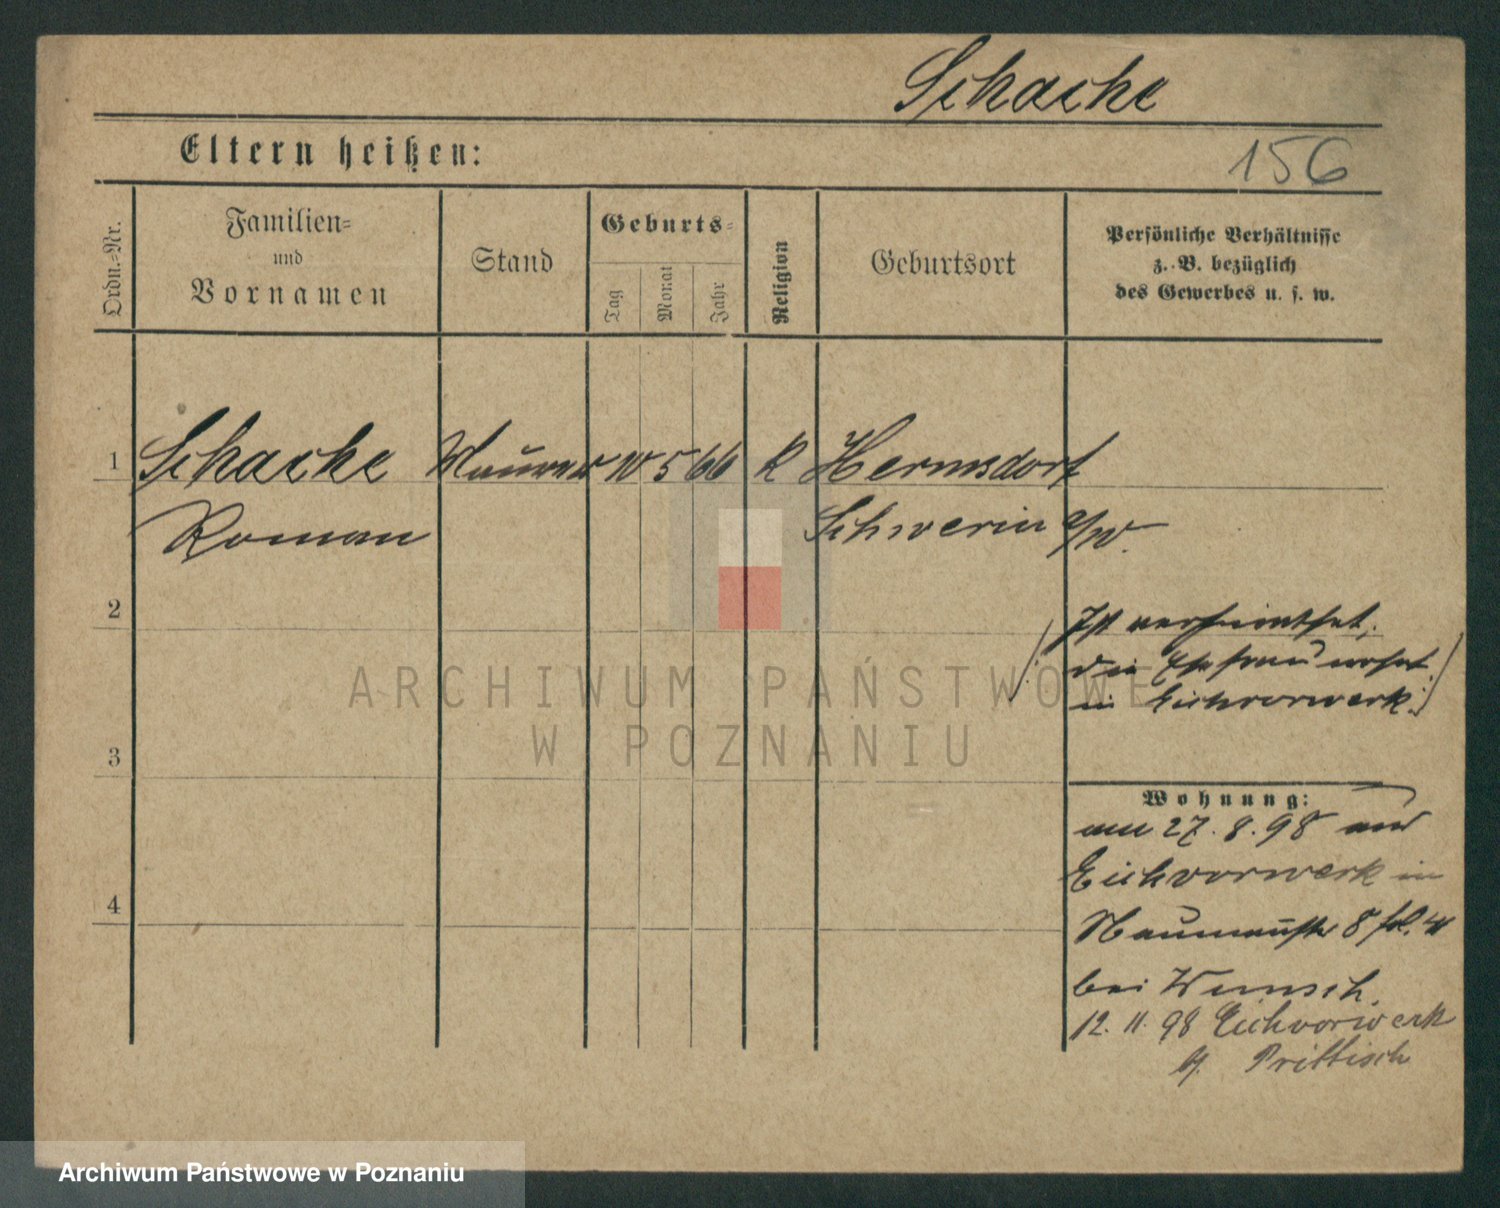 Schache
Eltern heißen:
156
Ordn.-Nr.
Familien-
und
Vornamen
Stand
Geburts-
Tag
Monat
Jahr
Religion
Geburtsort
Persönliche Verhältnisse
z. B. bezüglich
des Gewerbes u. s. w.
1 Schache Maurer 10 5 66 K Hermsdorf
Roman Schwerin a/W.
2
Ist verheirathet,
die Ehefrau wohnt
in Eichvorwerk.
3
Wohnung:
am 27. 8. 98 aus
Eichvorwerk in
Naumannstr 8
4
bei Wunsch.
12. 11. 98 Eichvorwerk
Prittisch
ARCHIWUM PAŃSTWOWE
W POZNANIU
Archiwum Państwowe w Poznaniu